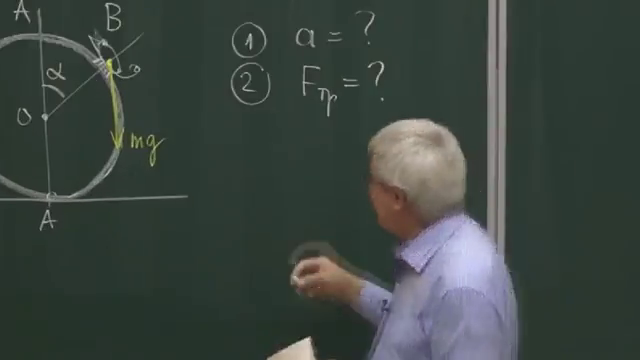 A
B
α
O
mg
A
① a = ?
② Fтр = ?